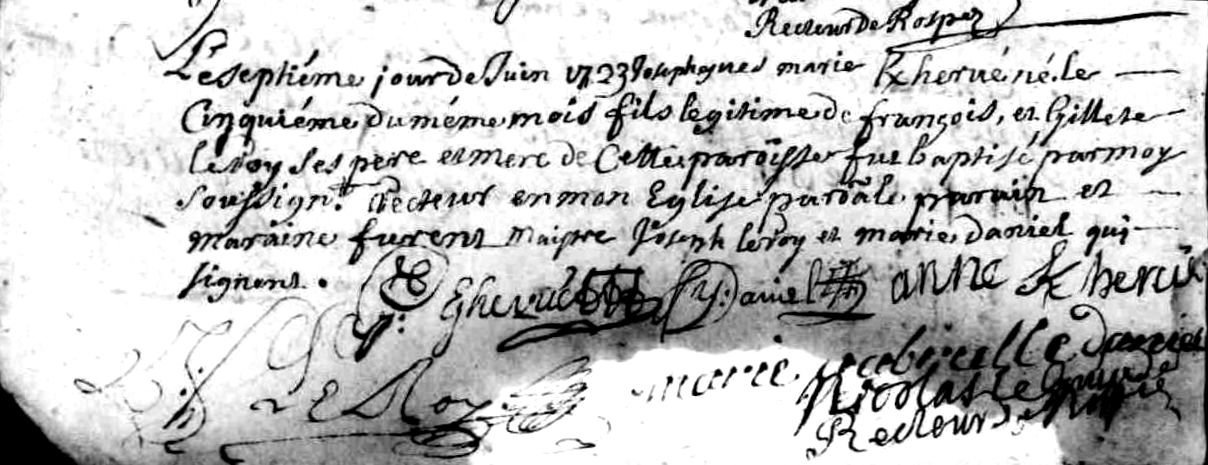 Recteur de Rospez
Le septiéme jour de Juin 1723 Joseph marie K/hervé né le
Cinquiéme du méme mois fils legitime de françois, et Gillete
le roy ses pere et mere de Cette paroisse fut baptisé par moy
soussigné Recteur en mon Eglise paroâle parain et
maraine furent maistre Joseph le roy et marie daniel qui
signent.
Y: Daniel anne K/hervé
marie daniel
LE Roy
Nicolas le
Recteur de